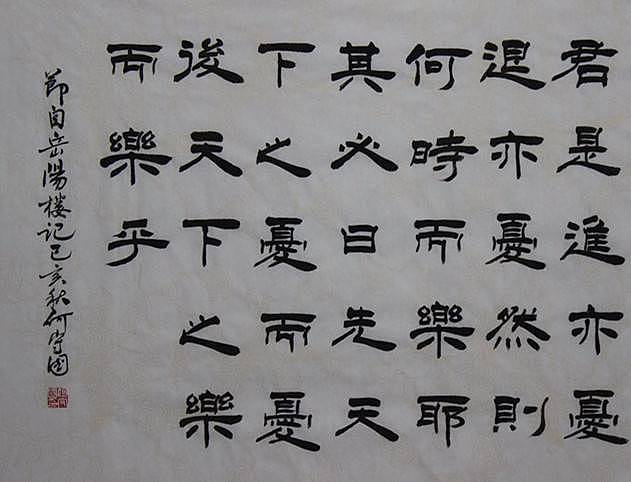 君是進亦憂
退亦憂然則
何時而樂耶
其必曰先天
下之憂而憂
後天下之樂
而樂乎
節自岳陽楼记己亥秋何守国